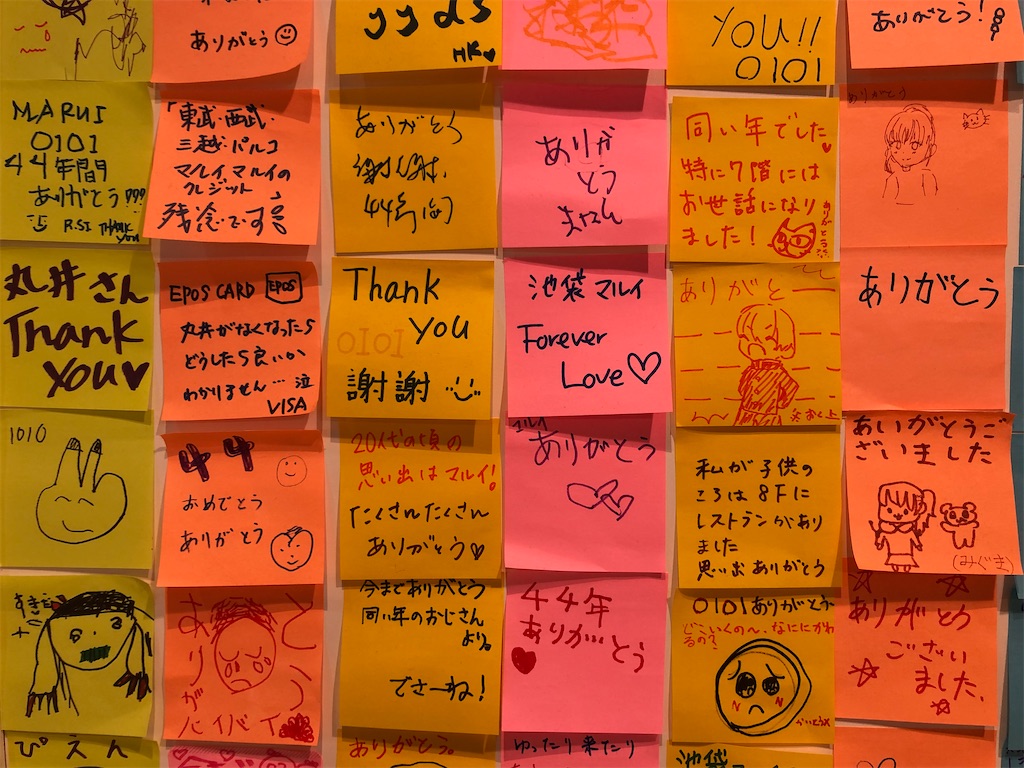 ありがとう
yyds
HK
YOU!!
0101
ありがとう!
MARUI
0101
44年間
ありがとう!!!
R.SI THANK
YOU
「東武・西武・
三越・パルコ
マルイ、マルイの
クレジット」
残念です。
ありがとう
謝謝.
44年间
ありが
とう
同い年でした
特に7階には
お世話になり
ました!
ありがとう
丸井さん
Thank
YOU
EPOS CARD EPOS
丸井がなくなったら
どうしたら良いか
わかりません…泣
VISA
Thank
you
0101
謝謝
池袋マルイ
Forever
Love
ありがとー
ありがとう
1010
44
おめでとう
ありがとう
20代の頃の
思い出はマルイ!
たくさんたくさん
ありがとう
マルイ
ありがとう
私が子供の
ころは8Fに
レストランがあり
ました
思い出ありがとう
あいがとうご
ざいました
(みぐま)
ありがとう
バイバイ
今までありがとう
同い年のおじさん
より。
でさーね!
44年
ありがとう
0101ありがとう
どこいくの〜、なににかわ
るの?
ありがとう
ござい
ました、
ぴえん
ありがとう。
ゆったり来たり
池袋